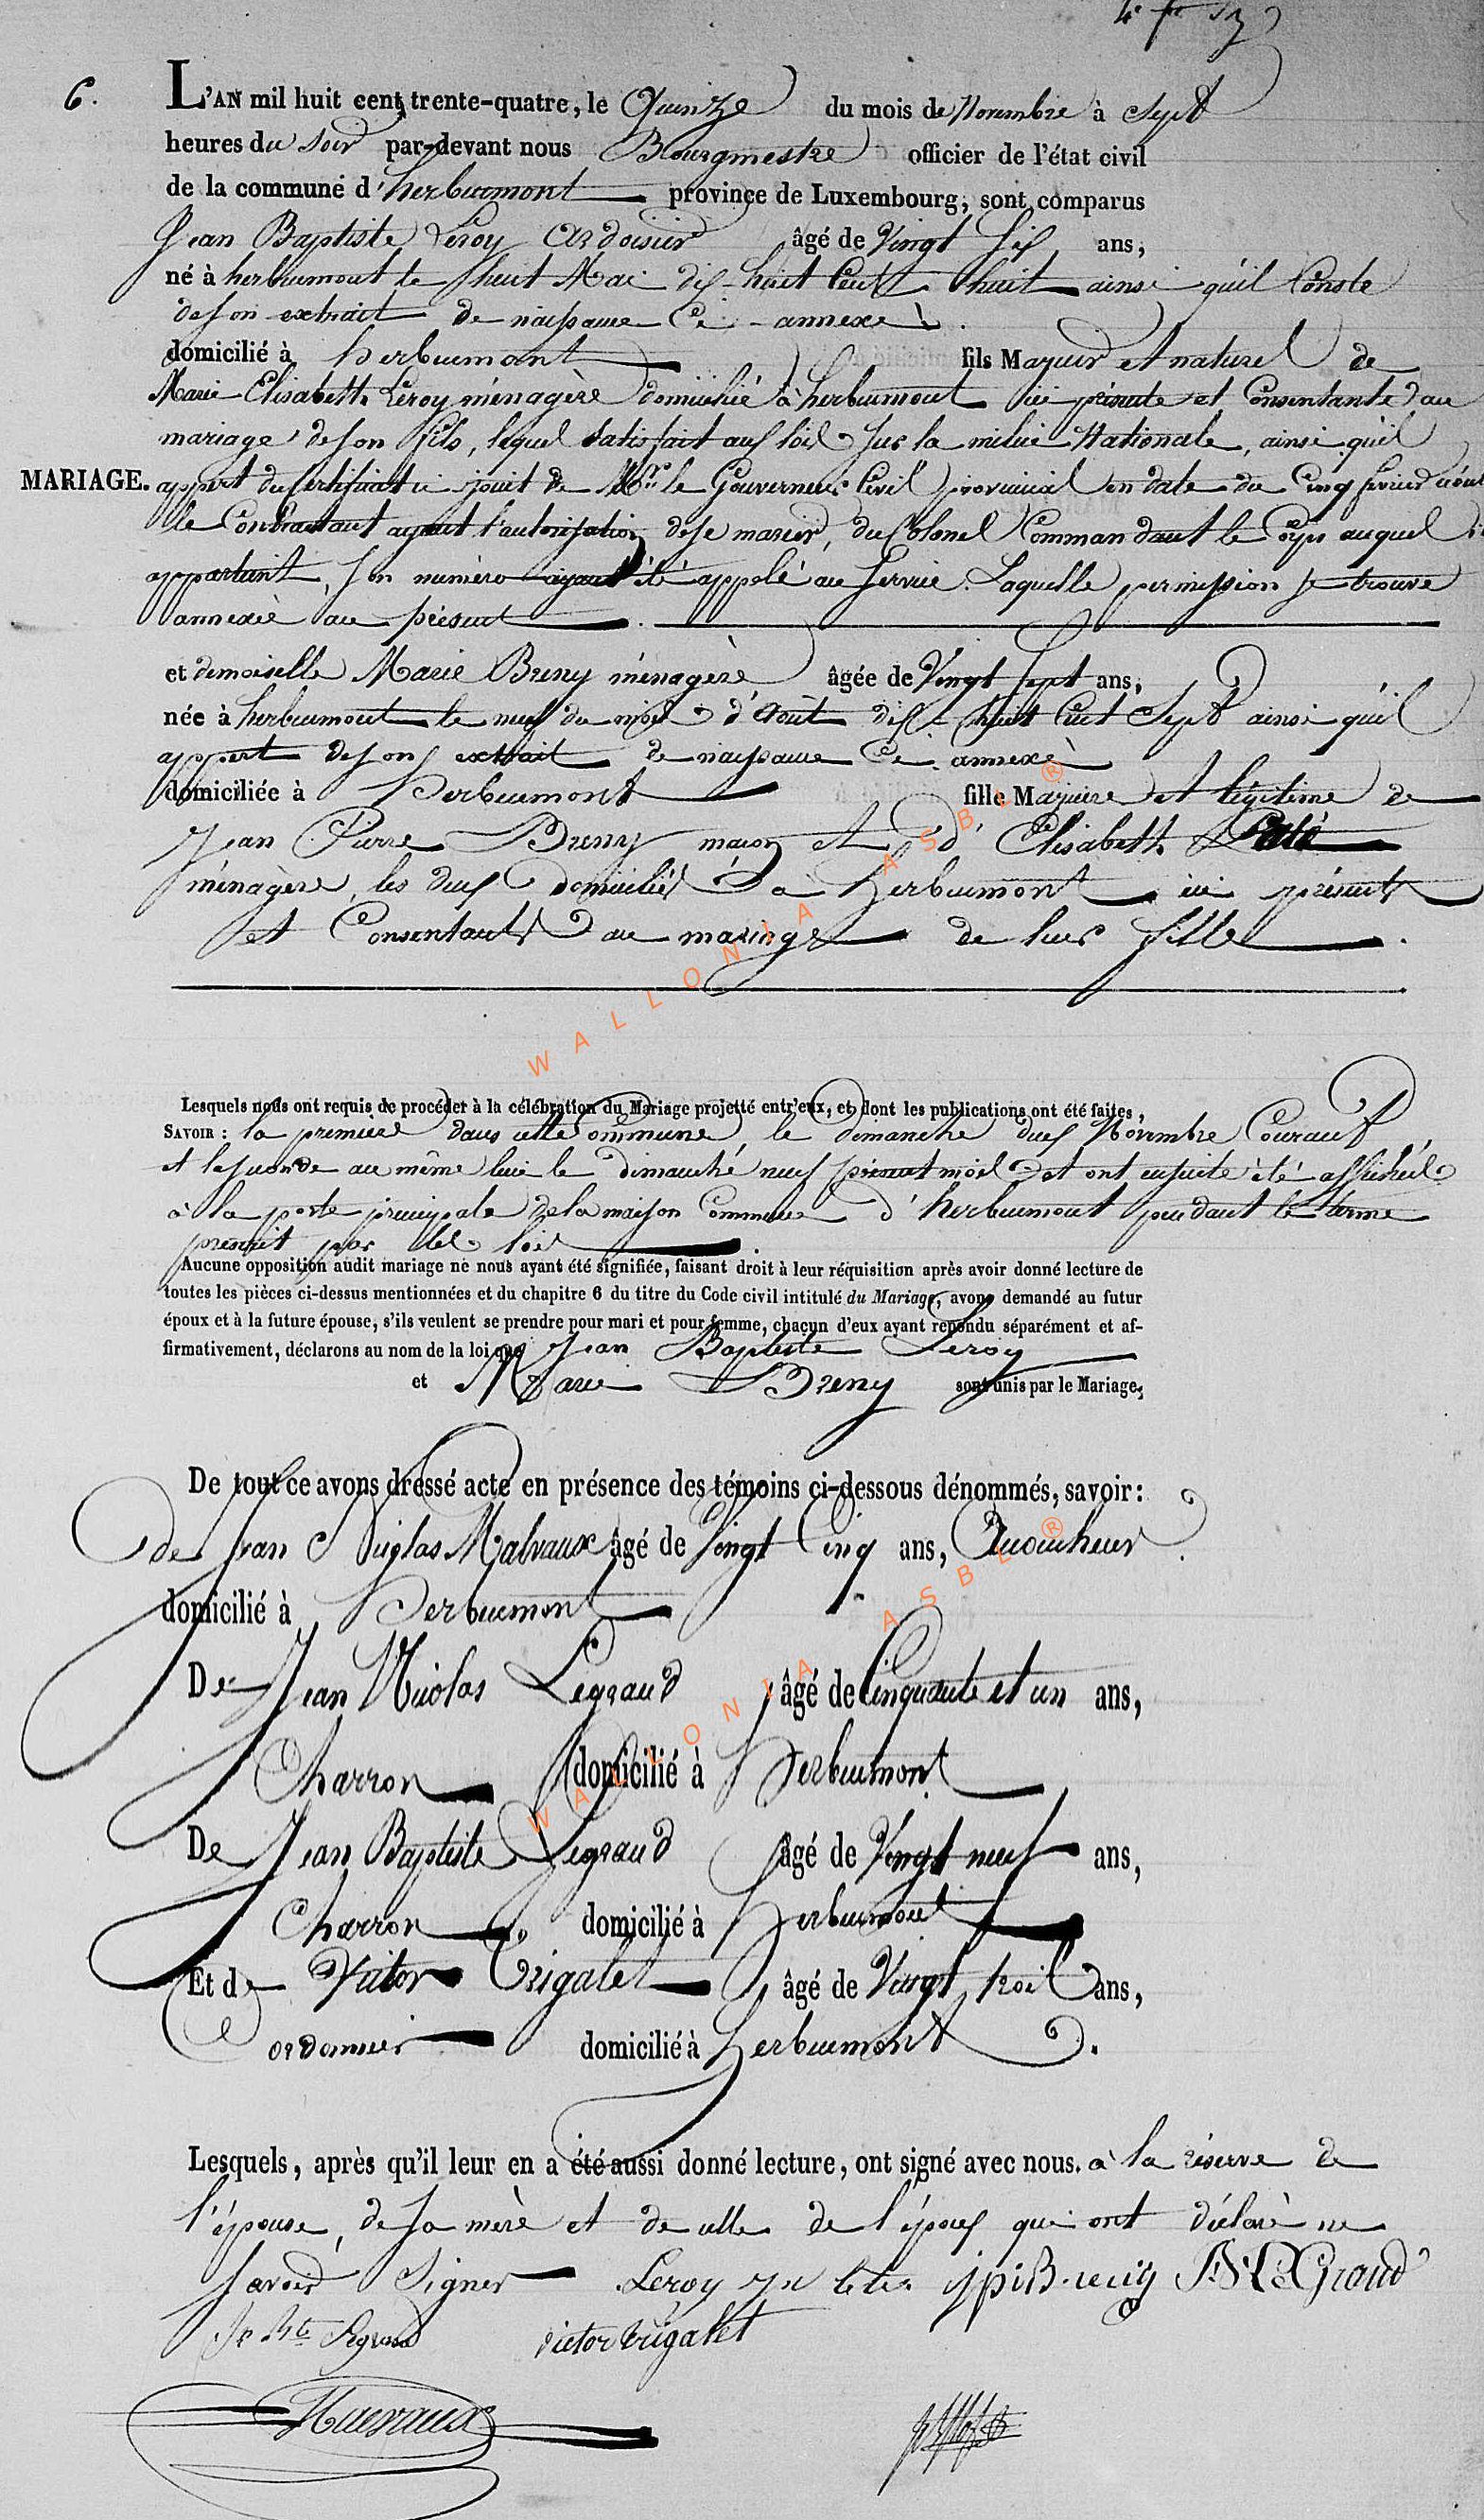 6.
L'AN mil huit cent trente-quatre, le Quinze du mois de Novembre à Sept
heures du soir par-devant nous Bourgmestre officier de l'état civil
de la commune d'herbeumont province de Luxembourg, sont comparus
Jean Baptiste Leroy Ardoisier âgé de Vingt Six ans,
né à herbeumont le huit Mai dix-huit Cent huit ainsi qu'il Conste
de son extrait de naissance Ci-annexé
domicilié à herbeumont fils Majeur et naturel de
Marie Elisabeth Leroy ménagère domiciliée à herbeumont ici présente et Consentante au
mariage de son fils, lequel satisfait aux lois sur la milice Nationale, ainsi qu'il
MARIAGE.
appert du Certificat ci joint de Mr. le Gouverneur Civil provincial en date du Cinq février
le Contractant ayant l'autorisation de se marier, du Colonel Commandant le Corps auquel il
appartient, son numéro ayant été appelé au Service. Laquelle permission se trouve
annexée au présent
et demoiselle Marie Breny ménagère âgée de Vingt Sept ans,
née à herbeumont le neuf du mois d'Août dix-huit Cent Sept ainsi qu'il
appert de son extrait de naissance Ci annexé
domiciliée à Herbeumont fille Majeure et légitime de
Jean Pierre Breny maçon et d'Elisabeth
ménagère, les deux domiciliés à herbeumont ici présents
et Consentants au mariage de leur fille.
Lesquels nous ont requis de procéder à la célébration du Mariage projetté entr'eux, et dont les publications ont été faites,
SAVOIR : la première dans cette Commune, le dimanche deux Novembre Courant,
et la seconde au même lieu le dimanche neuf présent mois et ont ensuite été affichées
à la porte principale de la maison Commune d'herbeumont pendant le terme
prescrit par les lois.
Aucune opposition audit mariage ne nous ayant été signifiée, faisant droit à leur réquisition après avoir donné lecture de
toutes les pièces ci-dessus mentionnées et du chapitre 6 du titre du Code civil intitulé du Mariage, avons demandé au futur
époux et à la future épouse, s'ils veulent se prendre pour mari et pour femme, chacun d'eux ayant répondu séparément et af-
firmativement, déclarons au nom de la loi que Jean Baptiste Leroy
et Marie Breny sont unis par le Mariage,
De tout ce avons dressé acte en présence des témoins ci-dessous dénommés, savoir :
de Jean Nicolas Malvaux âgé de Vingt Cinq ans,
domicilié à Herbeumont
De Jean Nicolas Legrand âgé de Cinquante et un ans,
Charron domicilié à Herbeumont
De Jean Baptiste Legrand âgé de Vingt neuf ans,
Charron domicilié à herbeumont
Et de Victor Trigalet âgé de Vingt trois ans,
Cordonnier domicilié à herbeumont.
Lesquels, après qu'il leur en a été aussi donné lecture, ont signé avec nous. à la réserve de
l'épouse, de sa mère et de celle de l'époux qui ont déclaré ne
savoir signer Leroy LeGrand
Legrand victor trigalet
WALLONIA ASBL ®
WALLONIA ASBL ®